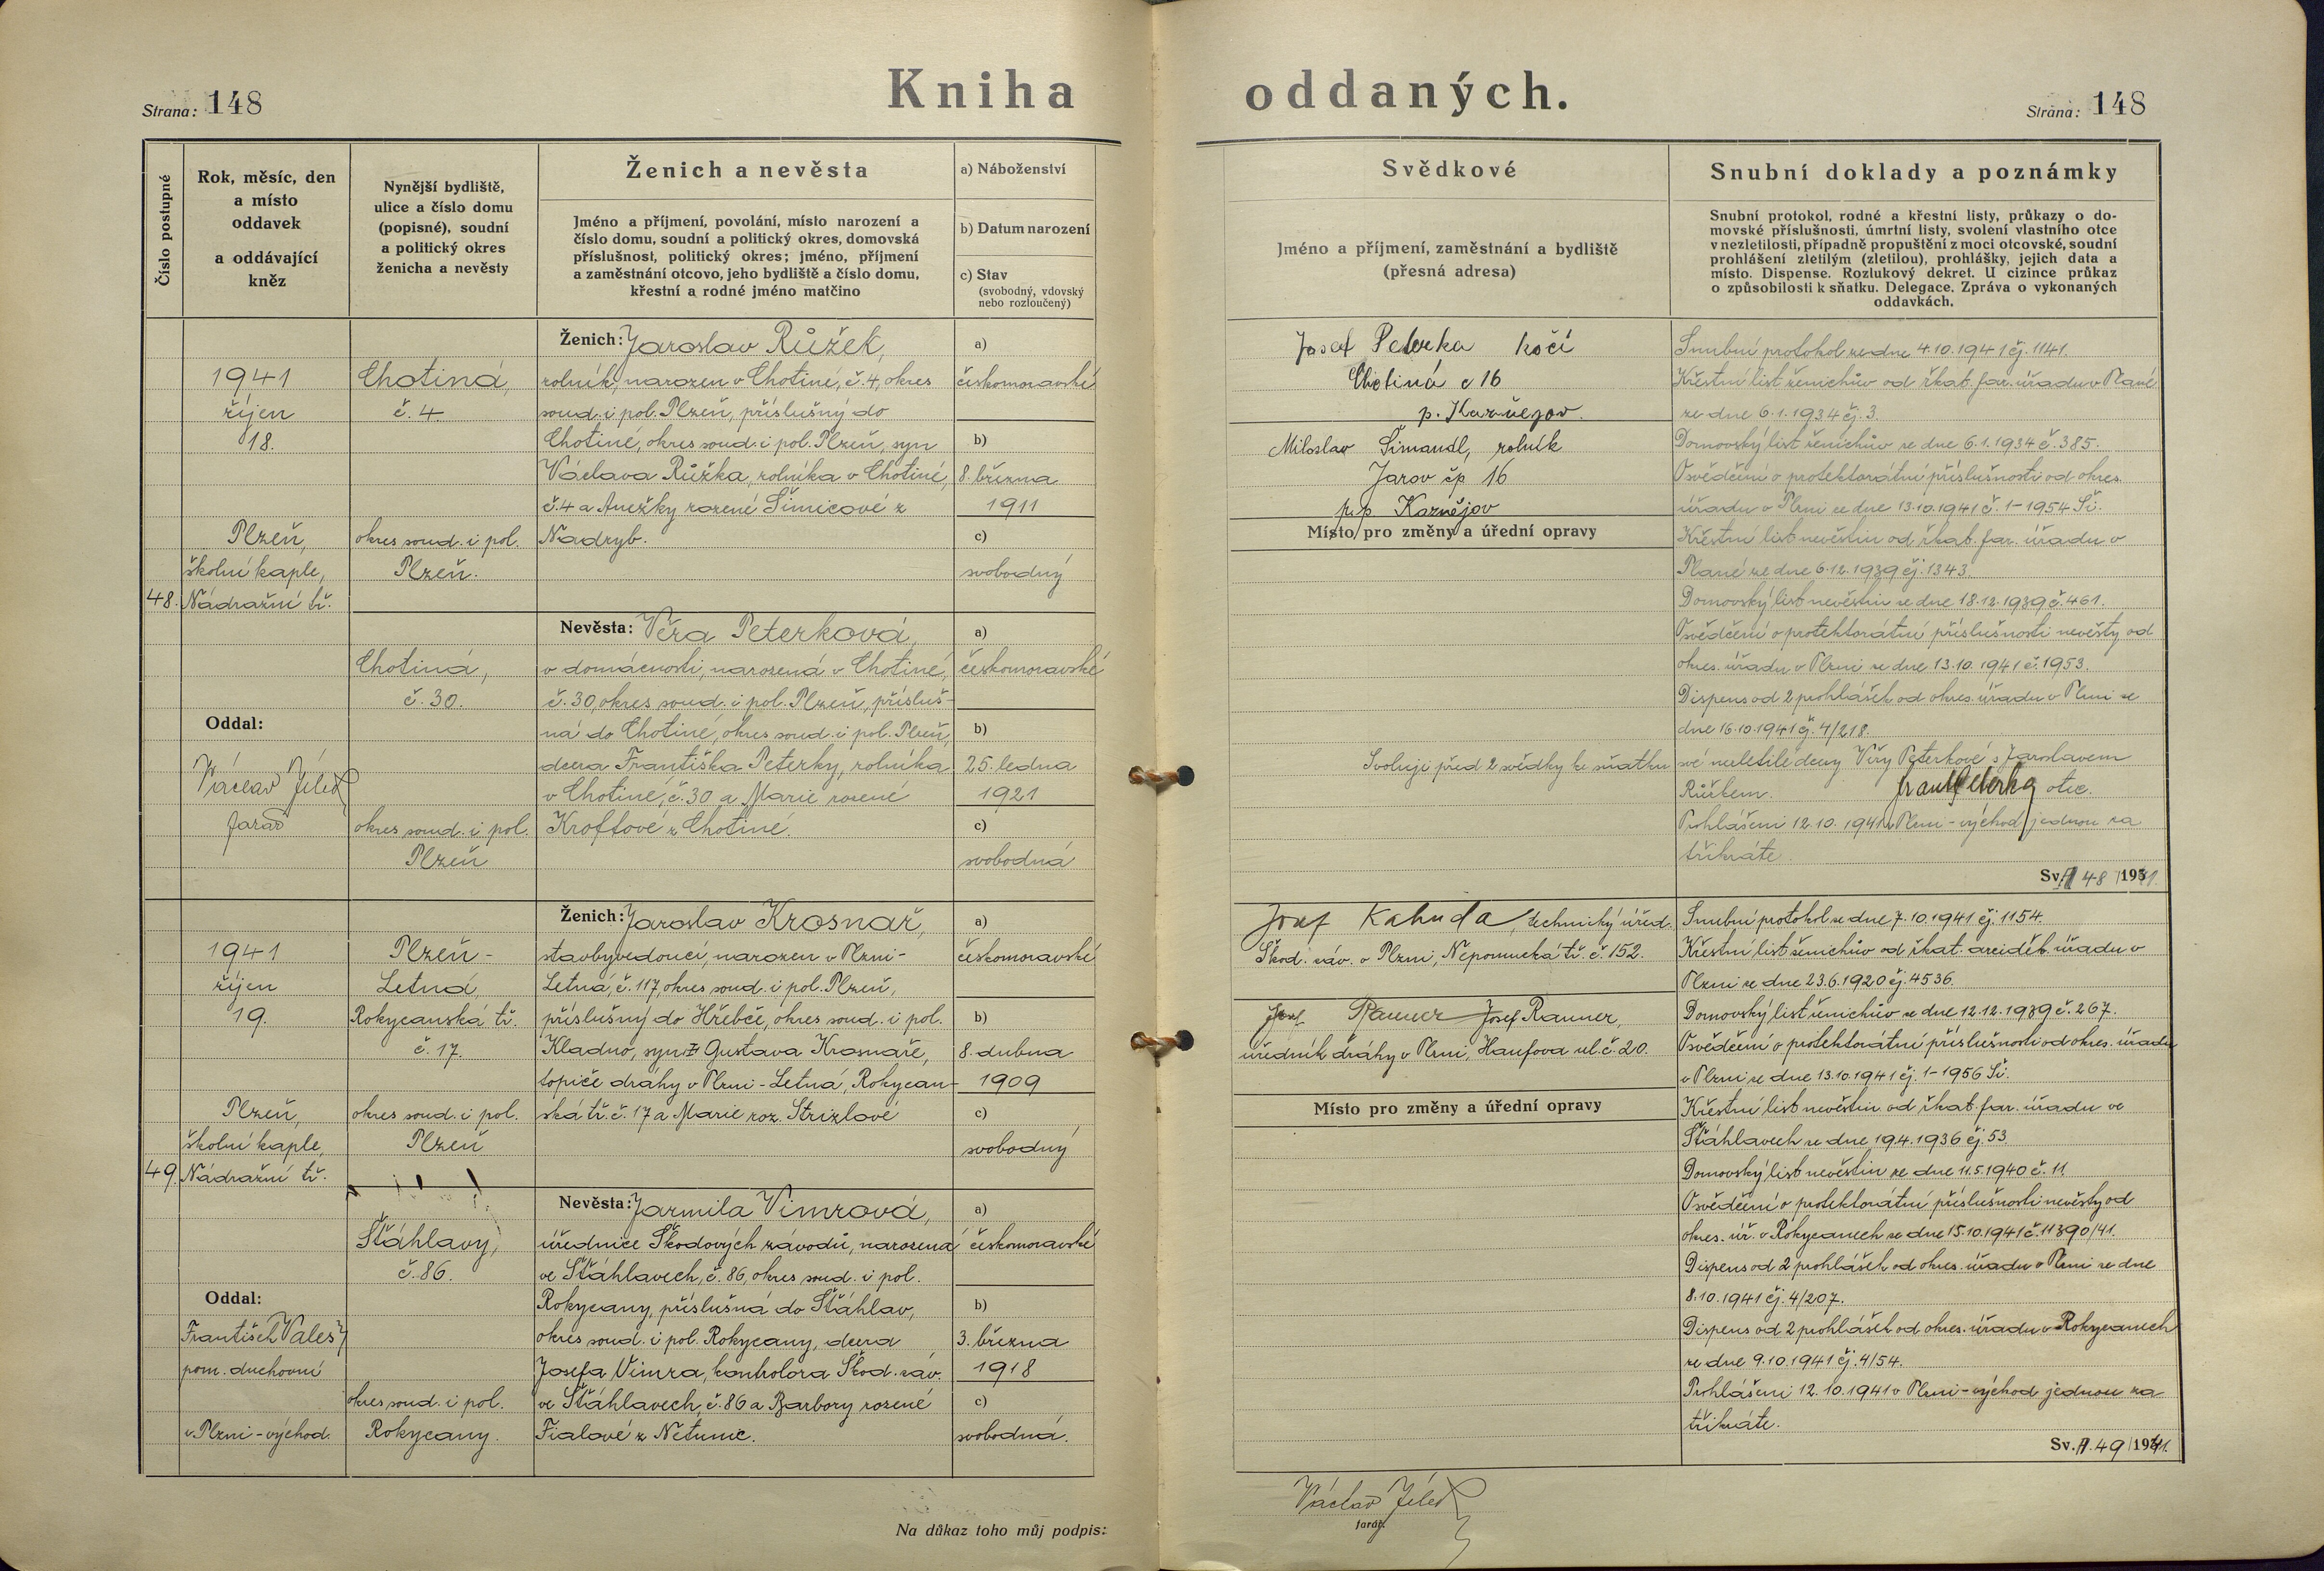 Kniha oddaných.
Strana: 148
Strana: 148
Číslo postupné
Rok, měsíc, den
a místo
oddavek
a oddávající
kněz
Nynější bydliště,
ulice a číslo domu
(popisné), soudní
a politický okres
ženicha a nevěsty
Ženich a nevěsta
Jméno a příjmení, povolání, místo narození a
číslo domu, soudní a politický okres, domovská
příslušnost, politický okres; jméno, příjmení
a zaměstnání otcovo, jeho bydliště a číslo domu,
křestní a rodné jméno matčino
a) Náboženství
b) Datum narození
c) Stav
(svobodný, vdovský
nebo rozloučený)
Svědkové
Jméno a příjmení, zaměstnání a bydliště
(přesná adresa)
Snubní doklady a poznámky
Snubní protokol, rodné a křestní listy, průkazy o do-
movské příslušnosti, úmrtní listy, svolení vlastního otce
v nezletilosti, případně propuštění z moci otcovské, soudní
prohlášení zletilým (zletilou), prohlášky, jejich data a
místo. Dispense. Rozlukový dekret. U cizince průkaz
o způsobilosti k sňatku. Delegace. Zpráva o vykonaných
oddavkách.
48.
1941
říjen
18.
Plzeň,
školní kaple,
Nádražní tř.
Oddal:
Václav Jelec
farář
Chotiná,
č. 4
okres soud. i pol.
Plzeň.
Chotiná,
č. 30.
okres soud. i pol.
Plzeň
Ženich: Jaroslav Růžek,
rolník, narozen v Chotiné, č. 4, okres
soud. i pol. Plzeň, příslušný do
Chotiné, okres soud. i pol. Plzeň, syn
Václava Růžka, rolníka v Chotiné,
č. 4 a Anežky rozené Šimicové z
Nadryb.
a)
českomoravské
b)
8. března
1911
c)
svobodný
Nevěsta: Věra Peterková,
v domácnosti, narozená v Chotiné,
č. 30, okres soud. i pol. Plzeň, přísluš-
ná do Chotiné, okres soud. i pol. Plzeň,
dcera Františka Peterky, rolníka
v Chotiné, č. 30 a Marie rozené
Kroftové z Chotiné.
a)
českomoravské
b)
25. ledna
1921
c)
svobodná
Josef Peterka kočí
Chotiná č 16
p. Kaznějov.
Miloslav Šimandl, rolník
Jarov čp 16
p. p. Kaznějov
Místo pro změny a úřední opravy
Snubní protokol ze dne 4.10.1941 čj. 1141.
Křestní list ženichův od řkat. far. úřadu v Plané
ze dne 6.1.1934 čj. 3.
Domovský list ženichův ze dne 6.1.1934 č. 385.
Osvědčení o protektorátní příslušnosti od okres.
úřadu v Plzni ze dne 13.10.1941 č. 1-1954 Ši.
Křestní list nevěstin od řkat. far. úřadu v
Plané ze dne 6.12.1939 čj. 1343.
Domovský list nevěstin ze dne 18.12.1939 č. 461.
Osvědčení o protektorátní příslušnosti nevěsty od
okres. úřadu v Plzni ze dne 13.10.1941 č. 1953.
Dispens od 2 prohlášek od okres. úřadu v Plzni ze
dne 16.10.1941 č. 4/218.
Svoluji před 2 svědky ke sňatku své nezletilé dcery Věry Peterkové s Jaroslavem
Růžkem. Frant Peterka otec.
Prohlášeni 12.10.1941 v Plzni-východ jednou za
třikráte.
Sv. A 48/1941.
49.
1941
říjen
19.
Plzeň,
školní kaple,
Nádražní tř.
Oddal:
František Valeš
pom. duchovní
v Plzni-východ.
Plzeň-
Letná
Rokycanská tř.
č. 17.
okres soud. i pol.
Plzeň
Šťáhlavy,
č. 86.
okres soud. i pol.
Rokycany.
Ženich: Jaroslav Krosnař,
stavbyvedoucí, narozen v Plzni-
Letná, č. 117, okres soud. i pol. Plzeň,
příslušný do Hřebče, okres soud. i pol.
Kladno, syn Gustava Krosnaře,
topiče dráhy v Plzni-Letná, Rokycan-
ská tř. č. 17 a Marie roz. Strizlové
a)
českomoravské
b)
8. dubna
1909
c)
svobodný
Nevěsta: Jarmila Vimrová,
úřednice Škodových závodů, narozená
ve Šťáhlavech, č. 86, okres soud. i pol.
Rokycany, příslušná do Šťáhlav,
okres soud. i pol. Rokycany, dcera
Josefa Vimra, kontrolora Škod. záv.
ve Šťáhlavech, č. 86 a Barbory rozené
Fialové z Netunic.
a)
českomoravské
b)
3. března
1918
c)
svobodná.
Josef Kahuda, technický úřed.
Škod. záv. v Plzni, Nepomucká tř. č. 152.
Josef Ranner Josef Ranner,
úředník dráhy v Plzni, Haufova ul. č. 20.
Místo pro změny a úřední opravy
Snubní protokol ze dne 7.10.1941 čj. 1154.
Křestní list ženichův od řkat. arciděk. úřadu v
Plzni ze dne 23.6.1920 čj. 4536.
Domovský list ženichův ze dne 12.12.1939 č. 267.
Osvědčení o protektorátní příslušnosti od okres. úřadu
v Plzni ze dne 13.10.1941 čj. 1-1956 Ši.
Křestní list nevěstin od řkat. far. úřadu ve
Šťáhlavech ze dne 19.4.1936 čj. 53.
Domovský list nevěstin ze dne 11.5.1940 č. 11.
Osvědčení o protektorátní příslušnosti nevěsty od
okres. úř. v Rokycanech ze dne 15.10.1941 č. 11390/41.
Dispens od 2 prohlášek od okres. úřadu v Plzni ze dne
8.10.1941 čj. 4/207.
Dispens od 2 prohlášek od okres. úřadu v Rokycanech
ze dne 9.10.1941 čj. 4/54.
Prohlášeni 12.10.1941 v Plzni-východ jednou za
třikráte.
Sv. A. 49/1941.
Na důkaz toho můj podpis:
Václav Jelec
farář.